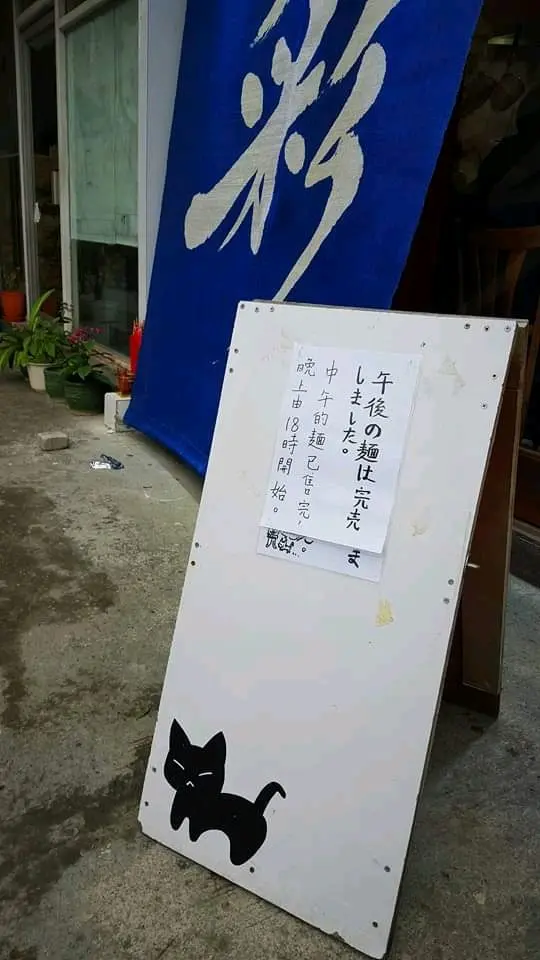 彩
午後の麺は完売
しました。
中午的麵已售完,
晚上由18時開始。